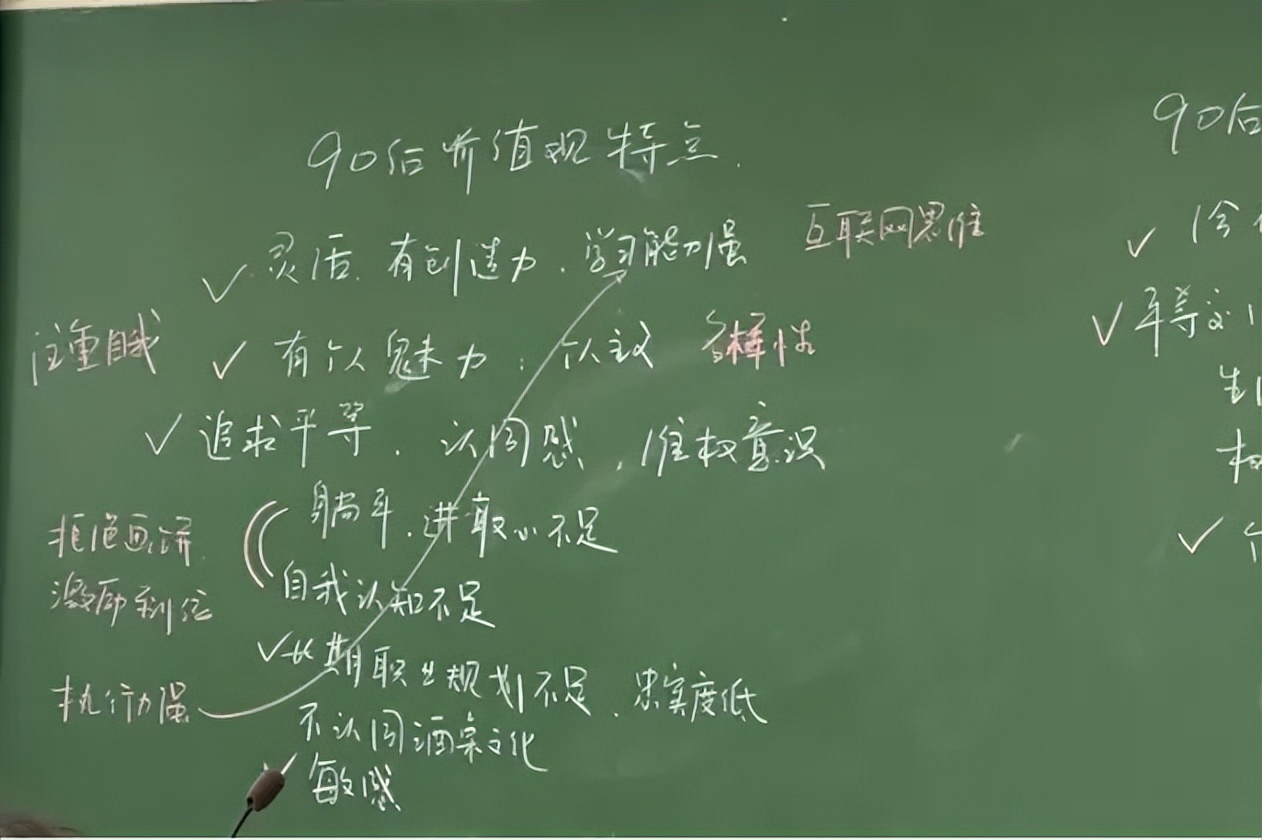 90后价值观特点.
灵活、有创造力、学习能力强 互联网思维
注重自我
有个人魅力; 个人主义 多样性
追求平等、认同感、维权意识
躺平、进取心不足
拒绝画饼
自我认知不足
激励到位
长期职业规划不足、忠实度低
执行力强
不认同酒桌文化
敏感
90后
平等交
生
个